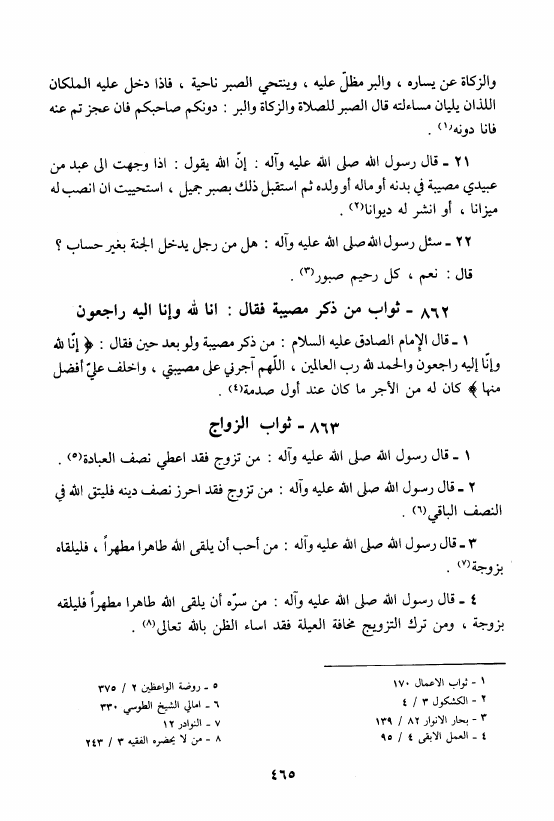 والزكاة عن يساره ، والبر مظلّ عليه ، وينتحي الصبر ناحية ، فاذا دخل عليه الملكان
اللذان يليان مساءلته قال الصبر للصلاة والزكاة والبر : دونكم صاحبكم فان عجزتم عنه
فانا دونه(١) .
٢١ - قال رسول الله صلى الله عليه وآله : إنّ الله يقول : اذا وجهت الى عبد من
عبيدي مصيبة في بدنه أو ماله أو ولده ثم استقبل ذلك بصبر جميل ، استحييت ان انصب له
ميزانا ، أو انشر له ديوانا(٢) .
٢٢ - سئل رسول الله صلى الله عليه وآله : هل من رجل يدخل الجنة بغير حساب ؟
قال : نعم ، كل رحيم صبور(٣) .
٨٦٢ - ثواب من ذكر مصيبة فقال : انا لله وإنا اليه راجعون
١ - قال الإمام الصادق عليه السلام : من ذكر مصيبة ولو بعد حين فقال : ﴿ إنّا لله
وإنّا إليه راجعون والحمد لله رب العالمين ، اللّهم آجرني على مصيبتي ، واخلف عليّ أفضل
منها ﴾ كان له من الأجر ما كان عند أول صدمة(٤) .
٨٦٣ - ثواب الزواج
١ - قال رسول الله صلى الله عليه وآله : من تزوج فقد اعطي نصف العبادة(٥) .
٢ - قال رسول الله صلى الله عليه وآله : من تزوج فقد احرز نصف دينه فليتق الله في
النصف الباقي(٦) .
٣ - قال رسول الله صلى الله عليه وآله : من أحب أن يلقى الله طاهرا مطهراً ، فليلقاه
بزوجة(٧) .
٤ - قال رسول الله صلى الله عليه وآله : من سرّه أن يلقى الله طاهرا مطهراً فليلقه
بزوجة ، ومن ترك التزويج مخافة العيلة فقد اساء الظن بالله تعالى(٨) .
١ - ثواب الاعمال ١٧٠
٢ - الكشكول ٣ / ٤
٣ - بحار الانوار ٨٢ / ١٣٩
٤ - العمل الابقى ٤ / ٩٥
٥ - روضة الواعظين ٢ / ٣٧٥
٦ - امالي الشيخ الطوسي ٣٣٠
٧ - النوادر ١٢
٨ - من لا يحضره الفقيه ٣ / ٢٤٣
٤٦٥